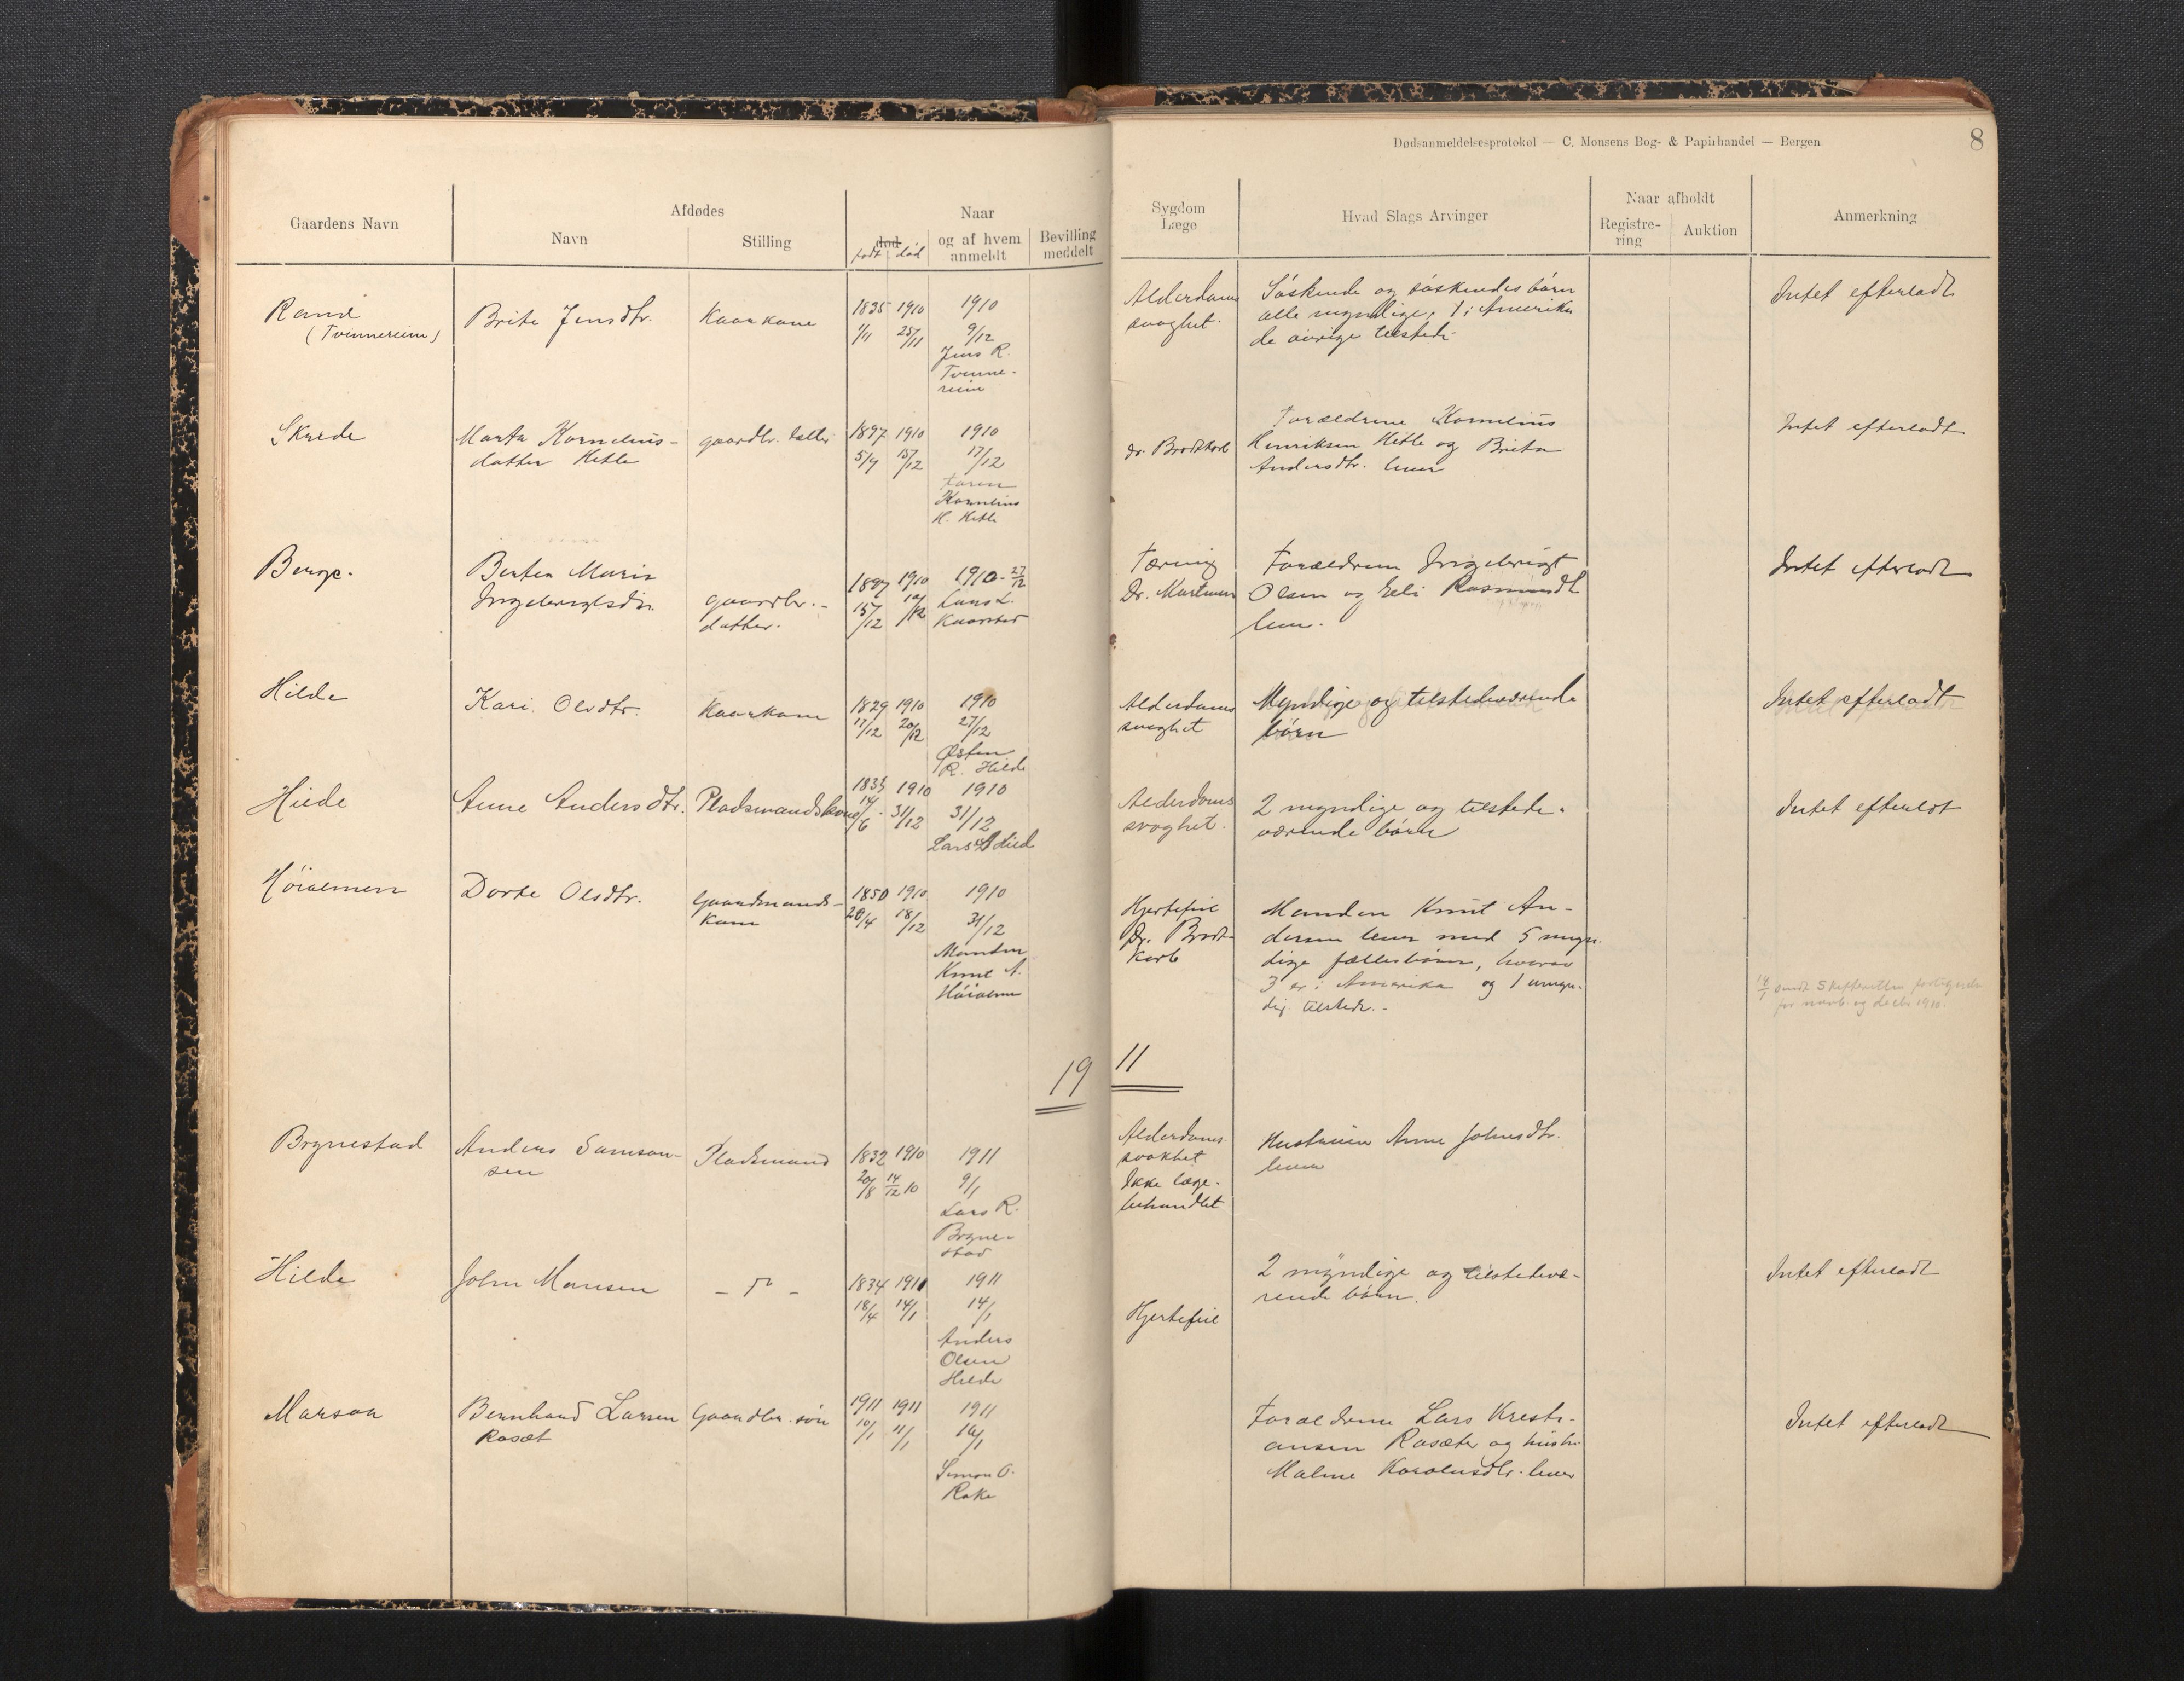 Dødsanmeldelsesprotokol — C. Monsens Bog- & Papirhandel — Bergen
8
Gaardens Navn
Afdødes
Navn
Stilling
Naar
død
født død
og af hvem anmeldt
Bevilling meddelt
Sygdom
Læge
Hvad Slags Arvinger
Naar afholdt
Registre-
ring
Auktion
Anmerkning
Rand
(Tvinnereim)
Brite Jensdtr.
Kaarkone
1835 1910
1/11 25/11
1910
9/12
Jens R.
Tvinne-
reim
Alderdoms
svaghet.
Søskende og søskendesbørn
alle myndige, 1 i Amerika
de øvrige tilstede
Intet efterladt
Skrede
Marta Kornelius-
datter Hetle
gaardbr. datter
1897 1910
5/4 15/12
1910
17/12
Faren
Kornelius
H. Hetle
Dr. Brodtkorb
Forældrene Kornelius
Henriksen Hetle og Brita
Andersdtr. lever
Intet efterladt
Berge.
Berten Marie
Ingebrigtsdtr.
gaardbr.-
datter.
1897 1910
15/12 10/12
1910- 27/12
Lars L.
Kaarstad
Tæring
Dr. Martmann
Forældrene Ingebrigt
Olsen og Eli Rasmusdt
lever.
Intet efterladt
Hilde
Kari Olsdtr.
Kaarkone
1829 1910
17/12 20/12
1910
27/12
Østen
R. Hilde
Alderdoms
svaghet
Myndige og tilstedeværende
børn
Intet efterladt
Hilde
Anne Andersdtr.
Pladsmandskone
1833 1910
14/6 - 31/12
1910
31/12
Lars Hild
Alderdoms
svaghet.
2 myndige og tilstede-
værende børn
Intet efterladt
Høialmen
Dorte Olsdtr.
Gaardmands-
kone
1850 1910
20/4 18/12
1910
31/12
Manden
Knut A.
Høialmen
Hjertefeil
Dr. Brodt-
korb
Manden Knut An-
dersen lever med 5 myn-
dige fællesbørn, hvorav
3 er i Amerika og 1 umyn-
dig tilstede.-
18/1 sendt Skifteretten fortegnelse
for novb. og decbr 1910.
19 11
Brynestad
Anders Samson-
sen
Pladsmand
1832 1910
20/8 14/12 10
1911
9/1
Lars R.
Bryne-
stad
Alderdoms-
svakhet
Ikke læge-
behandlet
Hustruen Anne Johnsdtr.
lever
Hilde
John Monsen
1834 1911
18/4 14/1
1911
14/1
Anders
Olsen
Hilde
Hjertefeil
2 myndige og tilstedevæ-
rende børn.
Intet efterladt
Marsaa
Bernhard Larsen
Rosæt
Gaardbr. søn
1911 1911
10/1 11/1
1911
16/1
Simon O.
Rake
Forældrene Lars Kresti-
ansen Rosæter og hustr.
Malene Karolusdtr. lever
Intet efterladt